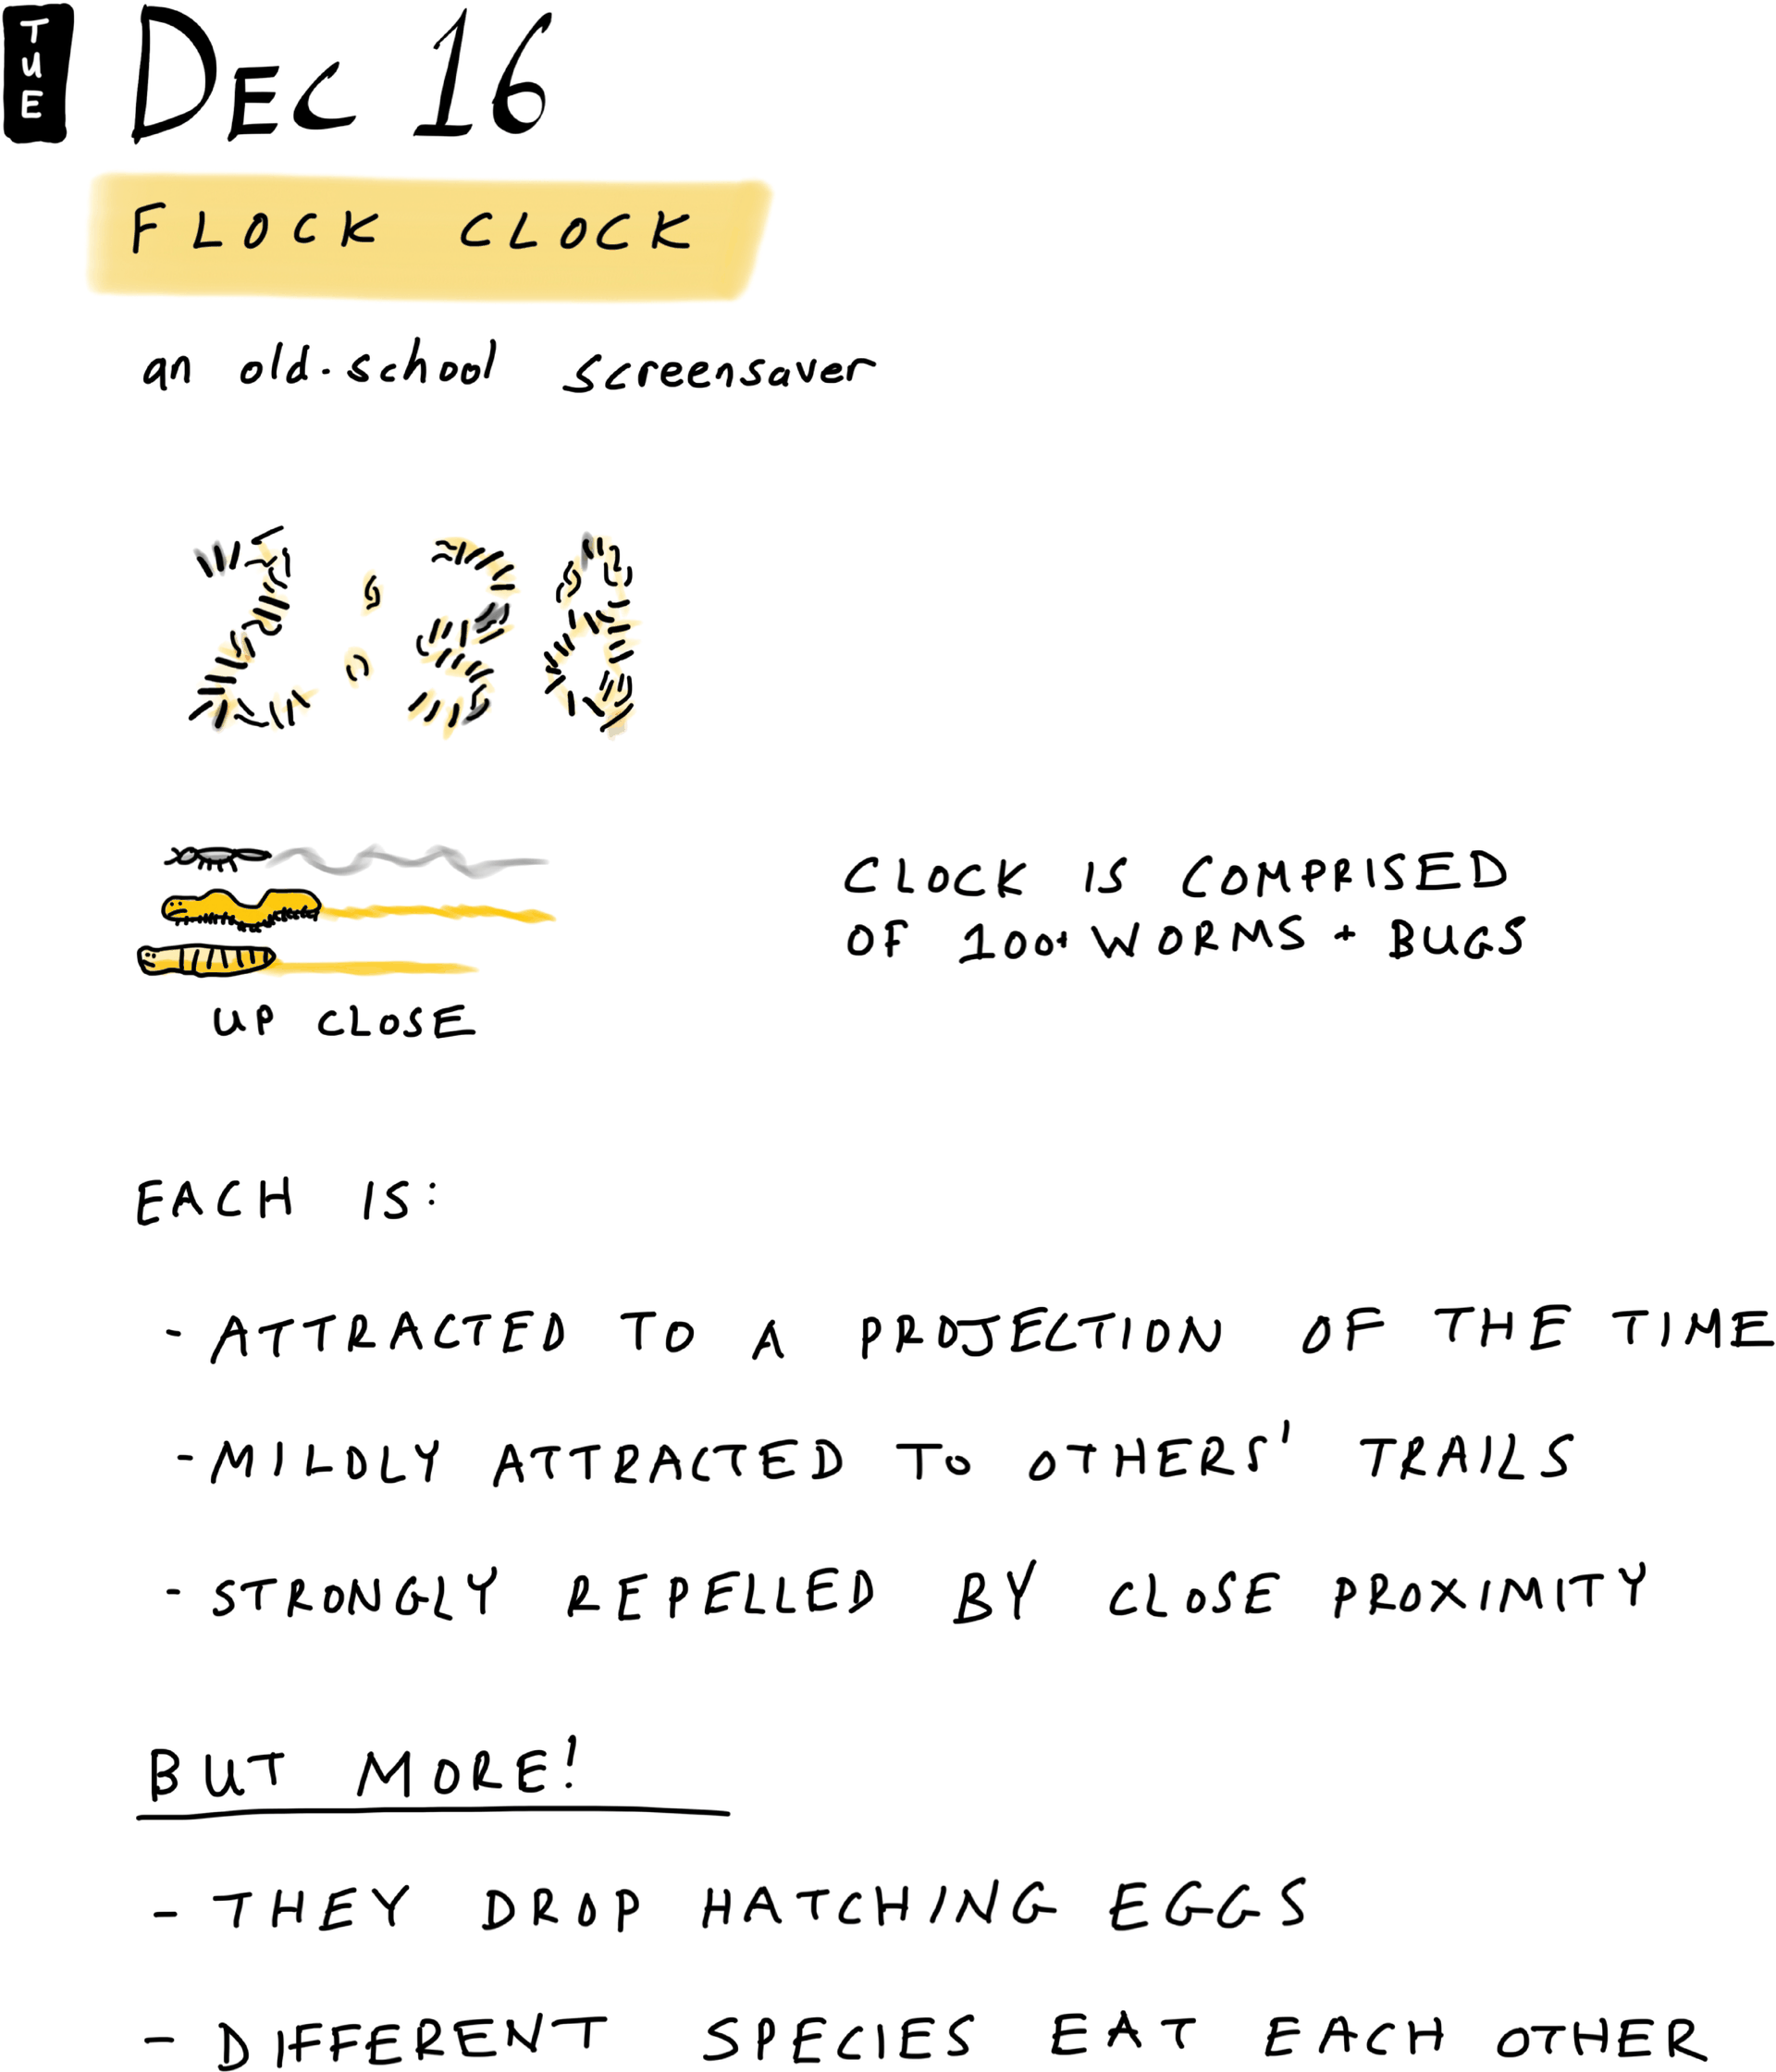 TUE
DEC 16
FLOCK CLOCK
an old-school screensaver
2:30
CLOCK IS COMPRISED
OF 100+ WORMS + BUGS
UP CLOSE
EACH IS:
- ATTRACTED TO A PROJECTION OF THE TIME
- MILDLY ATTRACTED TO OTHERS' TRAILS
- STRONGLY REPELLED BY CLOSE PROXIMITY
BUT MORE!
- THEY DROP HATCHING EGGS
- DIFFERENT SPECIES EAT EACH OTHER